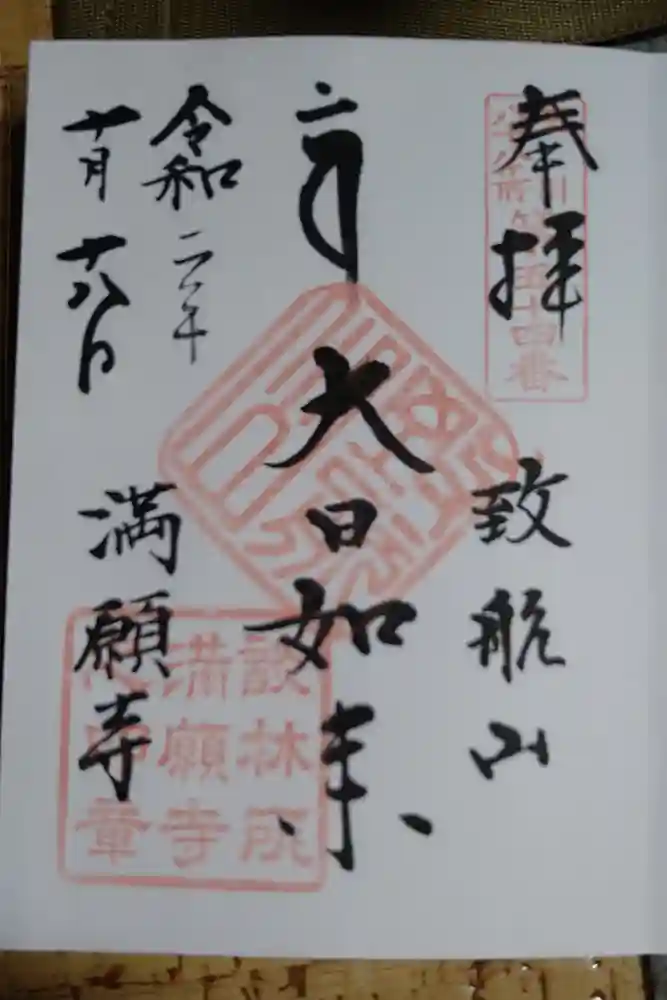 奉拝
致航山
大日如来
令和二年
十月十八日
満願寺
四番
談林所
満願寺
印章